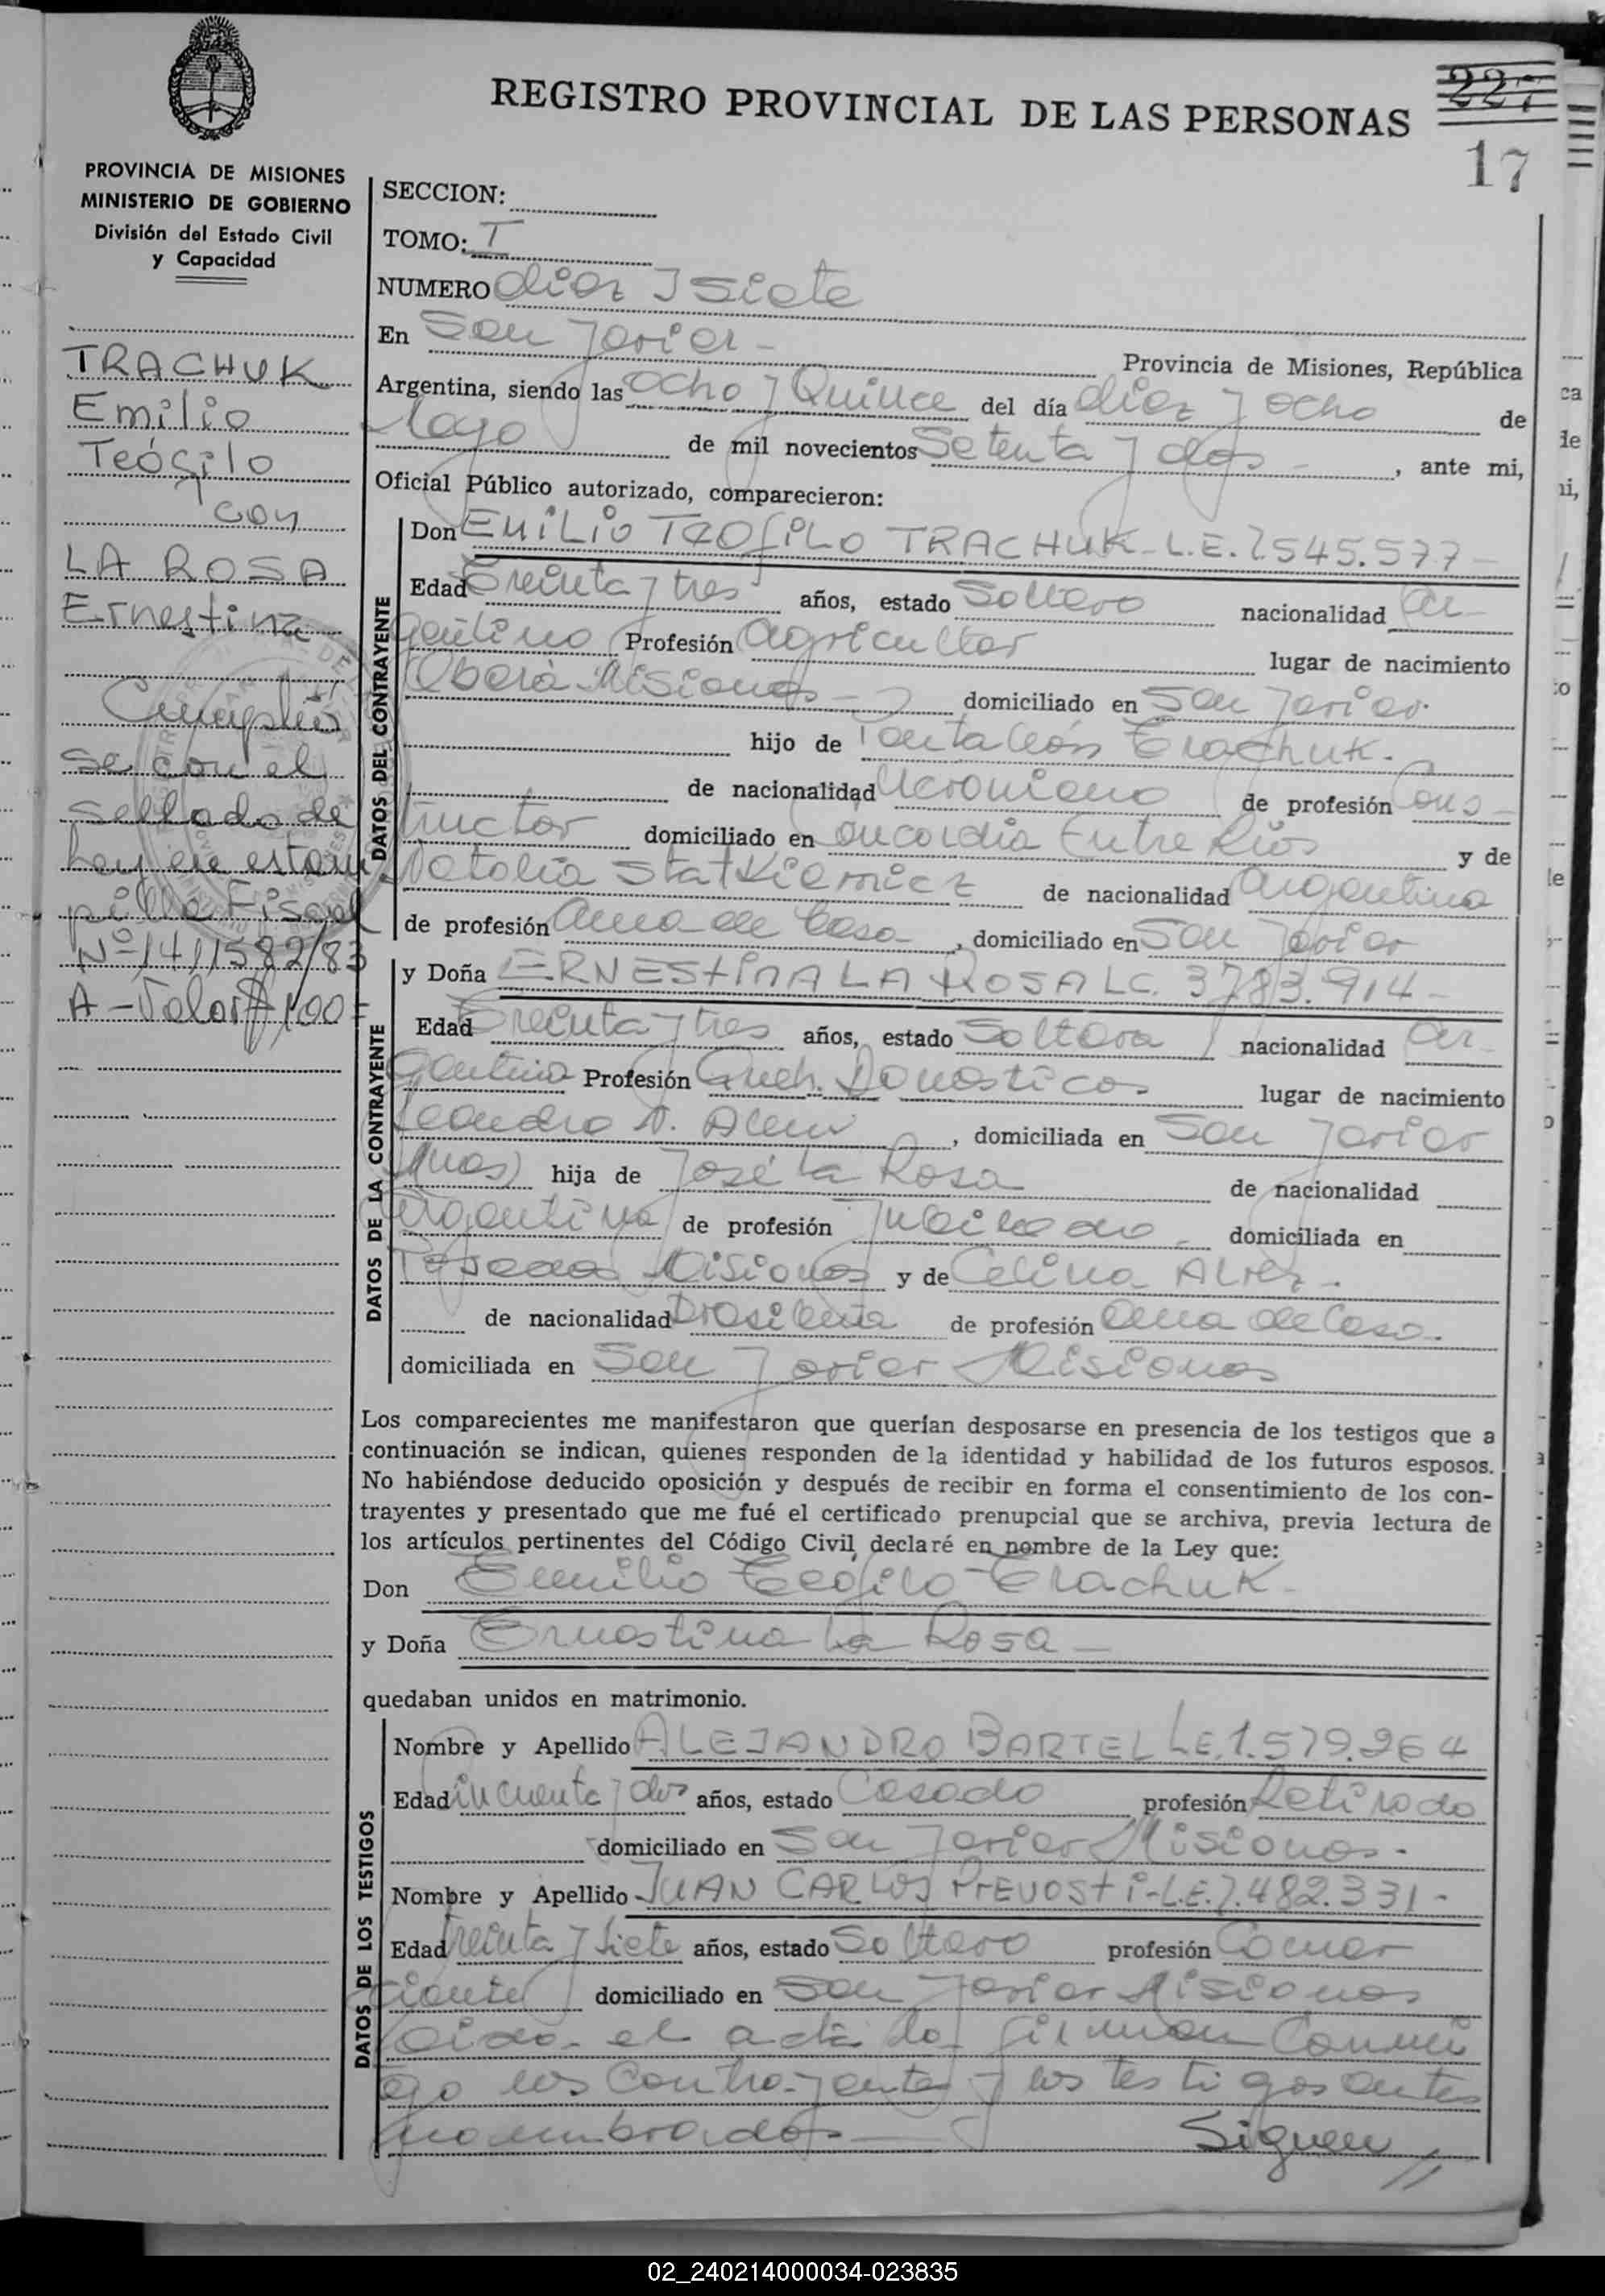 REGISTRO PROVINCIAL DE LAS PERSONAS
227
17
PROVINCIA DE MISIONES
MINISTERIO DE GOBIERNO
División del Estado Civil
y Capacidad
TRACHUK
Emilio
Teófilo
con
LA ROSA
Ernestina
Cumplió
se con el
sellado de
ley en estam
pilla Fiscal
Nº 1411582/83
A - Valor $ 1,00
SECCION:
TOMO: I
NUMERO diez y siete
En San Javier - Provincia de Misiones, República
Argentina, siendo las ocho y Quince del día diez y ocho de
Mayo de mil novecientos Setenta y dos - , ante mi,
Oficial Público autorizado, comparecieron:
DATOS DEL CONTRAYENTE
Don EMILIO TEOfiLO TRACHUK - L.E. 7.545.577 -
Edad Treinta y tres años, estado Soltero nacionalidad Ar-
gentino Profesión agricultor lugar de nacimiento
Oberá - Misiones - domiciliado en San Javier.
hijo de Pantaleón Trachuk.
de nacionalidad Ucraniano de profesión Cons-
tructor domiciliado en Concordia Entre Ríos y de
Natalia Statkiewicz de nacionalidad Argentina
de profesión ama de Casa , domiciliado en San Javier
DATOS DE LA CONTRAYENTE
y Doña ERNESTINA LA ROSA LC. 3.783.914 -
Edad Treinta y tres años, estado Soltera nacionalidad Ar-
gentina Profesión Queh. Domesticos lugar de nacimiento
Leandro N. Alem , domiciliada en San Javier
(Mnes) hija de José La Rosa de nacionalidad
Argentina de profesión Jubilado - domiciliada en
Posadas Misiones y de Celina Alvez.
de nacionalidad Brasileña de profesión Ama de Casa.
domiciliada en San Javier Misiones
Los comparecientes me manifestaron que querían desposarse en presencia de los testigos que a
continuación se indican, quienes responden de la identidad y habilidad de los futuros esposos.
No habiéndose deducido oposición y después de recibir en forma el consentimiento de los con-
trayentes y presentado que me fué el certificado prenupcial que se archiva, previa lectura de
los artículos pertinentes del Código Civil declaré en nombre de la Ley que:
Don Emilio Teofilo Trachuk -
y Doña Ernestina La Rosa -
quedaban unidos en matrimonio.
DATOS DE LOS TESTIGOS
Nombre y Apellido ALEJANDRO BARTEL L.E. 1.579.964
Edad Cincuenta y dos años, estado Casado profesión Retirado
domiciliado en San Javier Misiones -
Nombre y Apellido JUAN CARLOS PREVOSTI - L.E. 7.482.331 -
Edad treinta y siete años, estado Soltero profesión Comer
ciante domiciliado en San Javier Misiones
Leida el acta la firman Conmi
go los Contrayentes y los testigos antes
nombrados - Siguen //
02_240214000034-023835